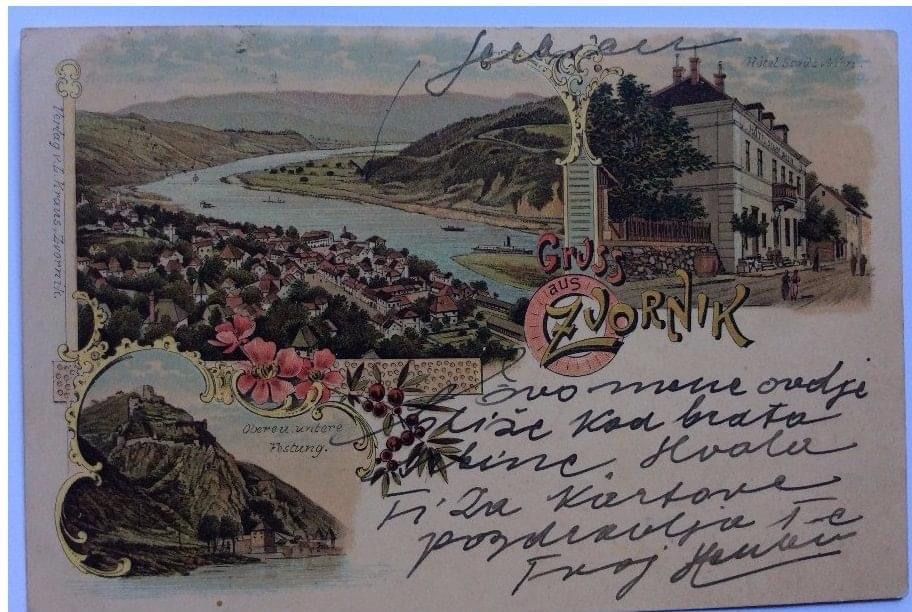 Hôtel
Verlag v. L. Kraus, Zvornik.
Gruss
aus
Zvornik
Ober e u. untere
Festung.
Ovo mene ovdje
stiže kod brata
Hvala
Ti za kartove
pozdravlja Te
Tvoj